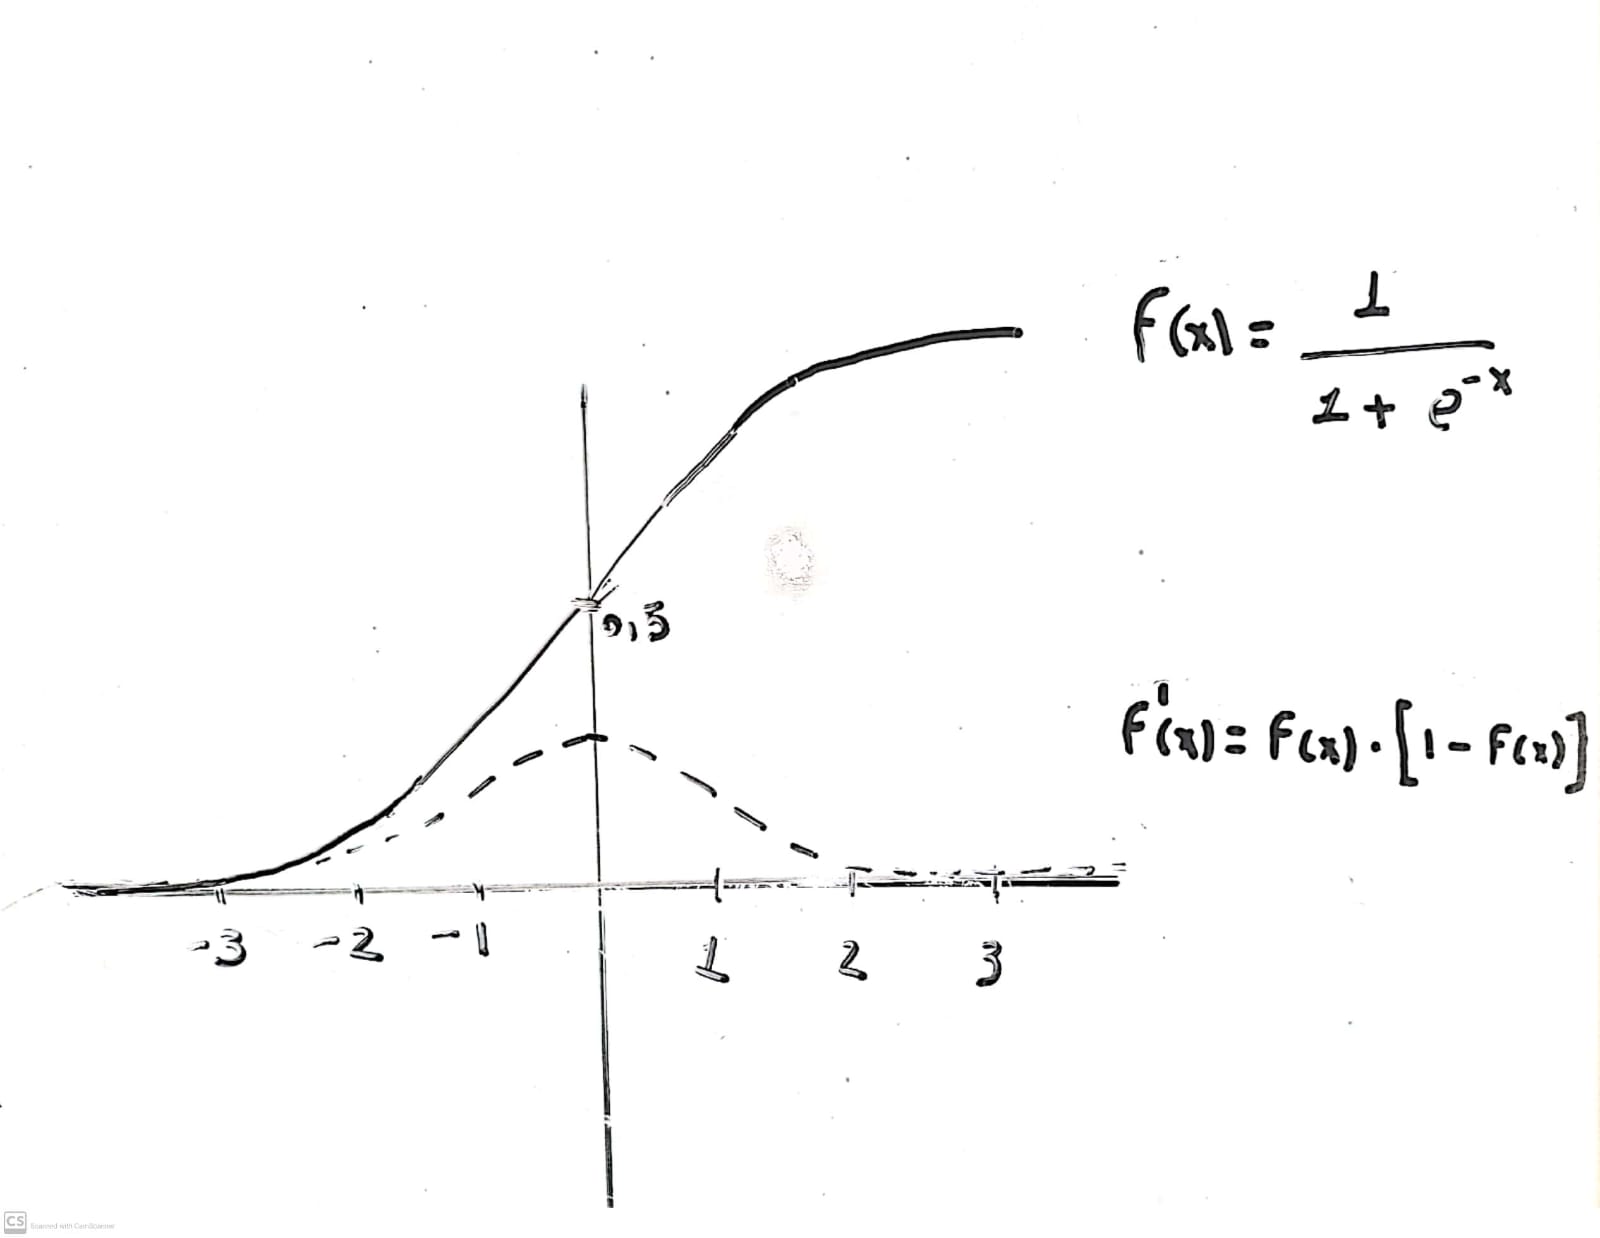 f(x) = 1 / 1 + e^-x
0,5
f'(x) = f(x) · [1 - f(x)]
-3 -2 -1 1 2 3
CS Scanned with CamScanner